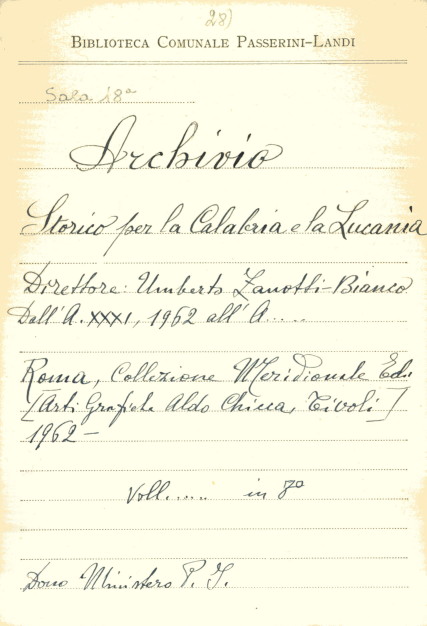 28)
BIBLIOTECA COMUNALE PASSERINI-LANDI
Sala 18ª
Archivio
Storico per la Calabria e la Lucania
Direttore: Umberto Zanotti-Bianco
Dall'A. XXXI, 1962 all'A.....
Roma, Collezione Meridionale Edi.
[Arti Grafiche Aldo Chicca, Tivoli]
1962-
Voll..... in 8º
Dono Ministero P. I.